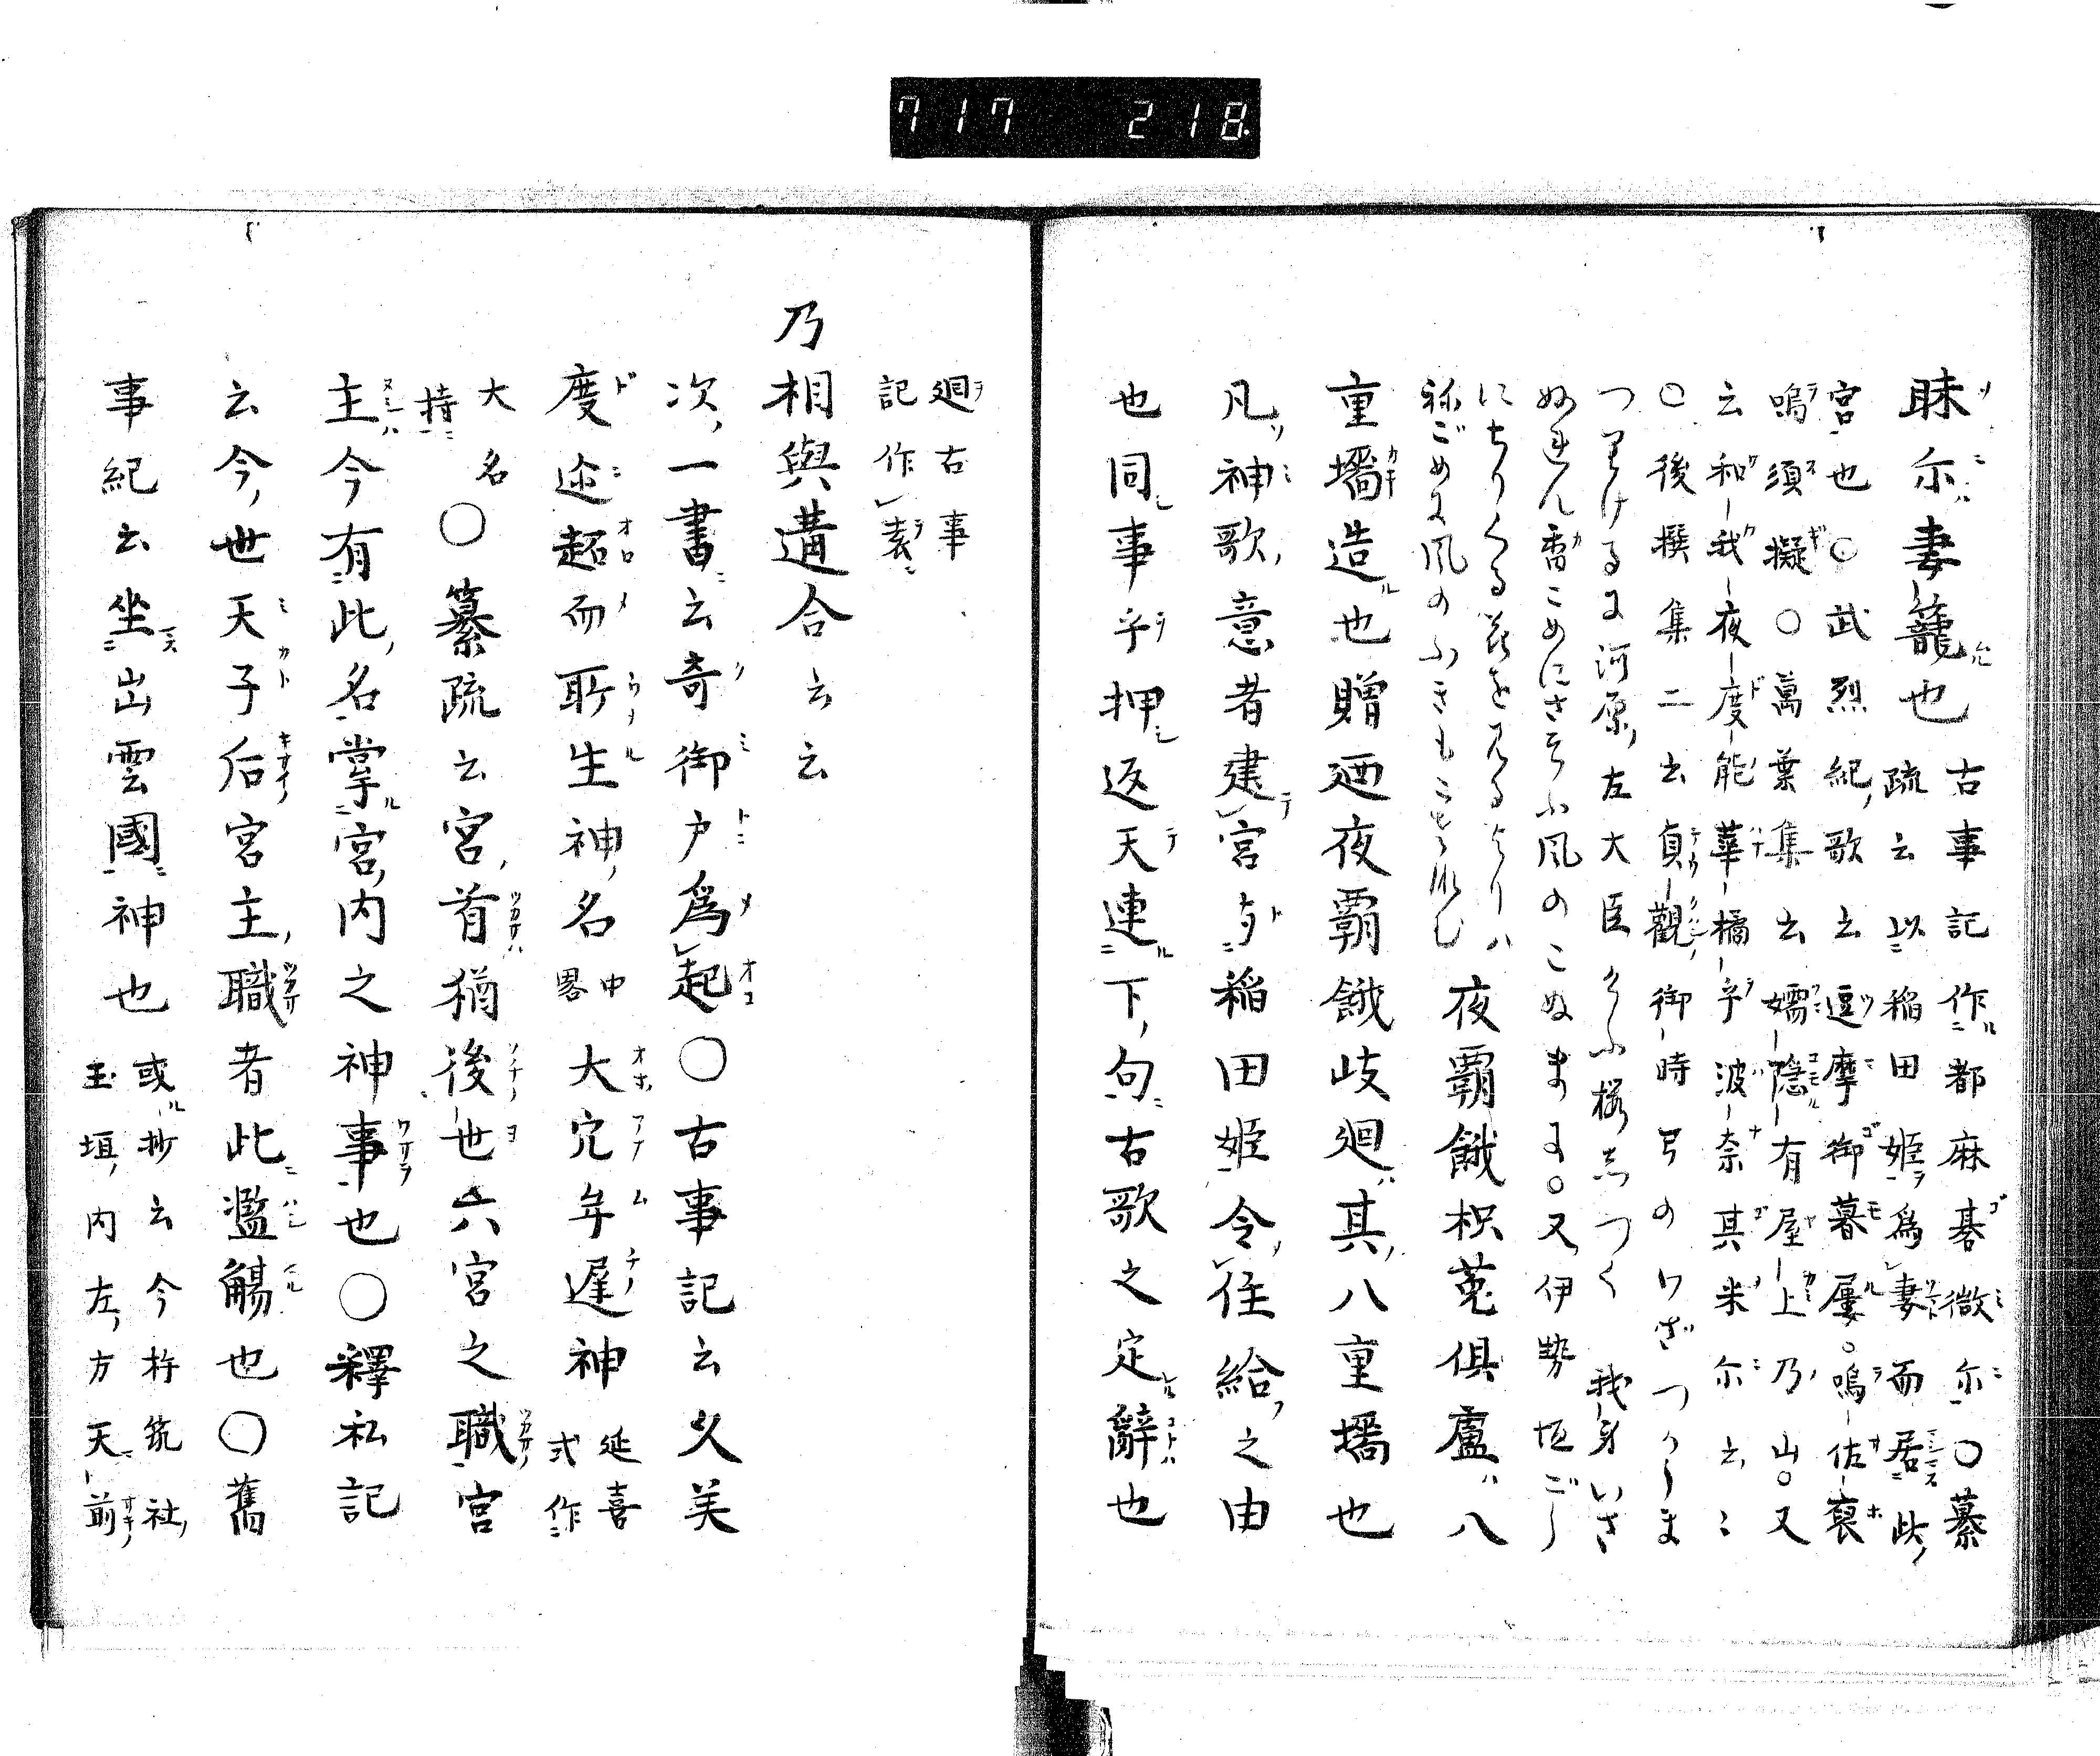 717 218
昧尓妻籠也 古事記作都麻碁微尓〇纂
疏云以稲田姫為妻而居此
宮也〇武烈紀歌云逗摩御暮屢〇嗚佐裒
嗚須擬〇萬葉集云嬬隠有屋上乃山〇又
云和我夜度能華橘乎波奈其米尓云〻
〇後撰集二云貞観御時弓のわざつかうま
つりけるに河原左大臣 けふ桜しづく 我身いさ
ぬれん香こめにさそふ風のこぬまに〇又伊勢 垣ごし
にちりくる花を見るよりハ
祢ごめに風のふきもこさなむ 夜覇餓枳菟倶盧ハ八
重墻造也贈廼夜覇餓岐廻ハ其八重墻也
凡神歌意者建宮与稲田姫令住給之由
也同事乎押返天連下句古歌之定辭也
廻古事
記作袁
乃相與遘合云云
次一書云奇御戸為起〇古事記云久美
度迩起而所生神名 中畧 大穴牟遅神 延喜式作
大名持 〇纂疏云宮首猶後世六宮之職宮
主今有此名掌宮内之神事也〇釋私記
云今世天子后宮宮主職者此濫觴也〇舊
事紀云坐出雲國神也 或抄云今杵築社
玉垣内左方天前